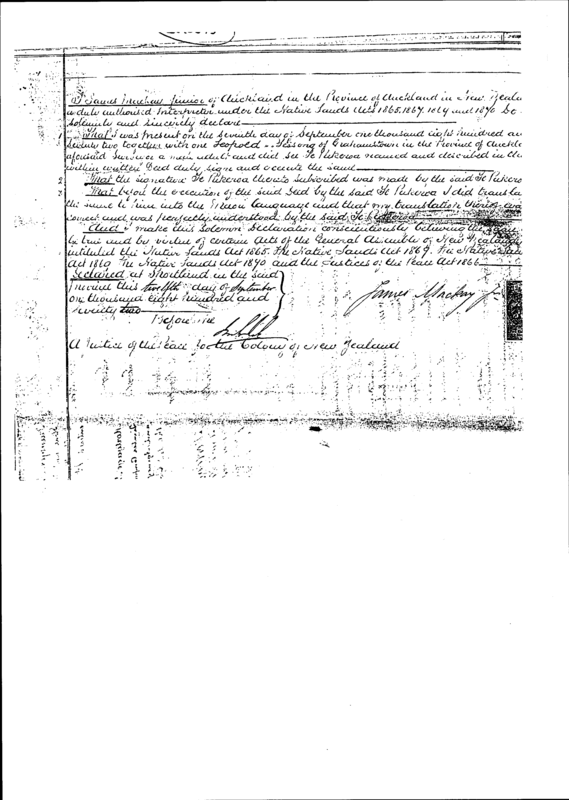 I James Mackay Junior of Auckland in the Province of Auckland in New Zeala
a duly authorised Interpreter under the Native Lands Acts 1865. 1867. 1869 and 1870 Do
solemnly and sincerely declare
1 That I was present on the seventh day of September one thousand eight hundred an
seventy two together with one Leopold of Grahamstown in the Province of Auckla
aforesaid a male adult and did see Te Pukeroa named and described in the
within written Deed duly sign and execute the same
2 That the signature Te Pukeroa thereto subscribed was made by the said Te Pukero
3 That before the execution of the said Deed by the said Te Pukeroa I did transla
the same to him into the Maori language and that my translation was
correct and was perfectly understood by the said Te Pukeroa
And I make this solemn Declaration conscientiously believing the same
be true and by virtue of certain Acts of the General Assembly of New Zealand
intituled the Native Lands Act 1865. The Native Lands Act 1867. The Native Lan
Act 1869 The Native Lands Act 1870 and the Justices of the Peace Act 1866
Declared at Shortland in the said
Province this twelfth day of September
one thousand eight hundred and
seventy two
Before me
James Mackay Jr
A Justice of the Peace for the Colony of New Zealand